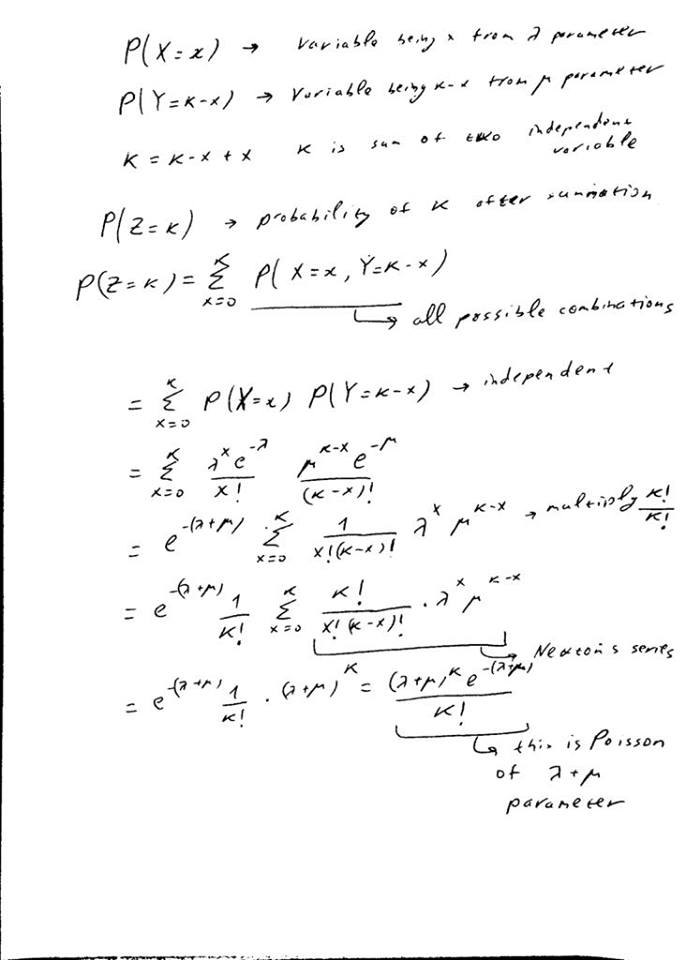 P(X=x) → variable being x from λ parameter
P(Y=κ-x) → variable being κ-x from μ parameter
κ = κ-x + x   κ is sum of two independent variable
P(Z=κ) → probability of κ after summation
P(Z=κ) = ∑_{x=0}^{κ} P(X=x, Y=κ-x)
↳ all possible combinations
= ∑_{x=0}^{κ} P(X=x) P(Y=κ-x) → independent
= ∑_{x=0}^{κ} \frac{λ^x e^{-λ}}{x!} \frac{μ^{κ-x} e^{-μ}}{(κ-x)!}
= e^{-(λ+μ)} · ∑_{x=0}^{κ} \frac{1}{x!(κ-x)!} λ^x μ^{κ-x} → multiply \frac{κ!}{κ!}
= e^{-(λ+μ)} \frac{1}{κ!} ∑_{x=0}^{κ} \frac{κ!}{x!(κ-x)!} · λ^x μ^{κ-x}
↳ Newton's series
= e^{-(λ+μ)} \frac{1}{κ!} · (λ+μ)^κ = \frac{(λ+μ)^κ e^{-(λ+μ)}}{κ!}
↳ this is Poisson
of λ+μ
parameter